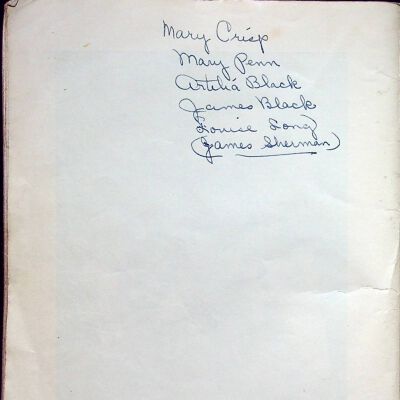 Mary Crisp
Mary Penn
Artelia Black
James Black
Louise Long
(James Sherman)